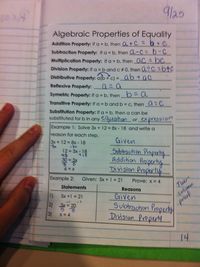 9/20
Algebraic Properties of Equality
Addition Property: If a = b, then a + c = b + c
Subtraction Property: If a = b, then a - c = b - c
Multiplication Property: If a = b, then ac = bc
Division Property: If a = b and c ≠ 0, then a ÷ c = b ÷ c
Distributive Property: a(b + c) = ab + ac
Reflexive Property: a = a
Symmetric Property: If a = b, then b = a
Transitive Property: If a = b and b = c, then a = c
Substitution Property: If a = b, then a can be
substituted for b in any equation or expression
Example 1: Solve 3x + 12 = 8x - 18 and write a
reason for each step.
3x + 12 = 8x - 18 Given
12 = 5x - 18 Subtraction Property
30 = 5x Addition Property
6 = x Division Property
Example 2: Given: 3x + 1 = 21 Prove: x = 4
Statements Reasons
1) 5x + 1 = 21 Given
2) Subtraction Property
3) x = 4 Division Property
14